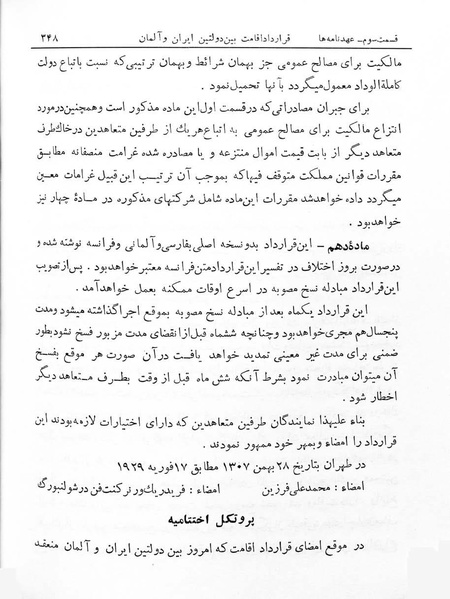 قسمت سوم ـ عهدنامه‌ها قرارداد اقامت بین دولتین ایران و آلمان ۳۴۸
مالکیت برای مصالح عمومی جز بهمان شرائط و بهمان ترتیبی که نسبت باتباع دولت
کاملة‌الوداد معمول میگردد بآنها تحمیل نمود .
برای جبران مصادراتی که در قسمت اول این ماده مذکور است و همچنین در مورد
انتزاع مالکیت برای مصالح عمومی به اتباع هریك از طرفین متعاهدین در خاك طرف
متعاهد دیگر از بابت قیمت اموال منتزعه و یا مصادره شده غرامت منصفانه مطابق
مقررات قوانین مملکت متوقف فیها که بموجب آن ترتیب این قبیل غرامات معین
میگردد داده خواهد شد مقررات این ماده شامل شرکتهای مذکوره در مادهٔ چهار نیز
خواهد بود .
ماده‌دهم ـ این قرارداد بدو نسخه اصلی بفارسی و آلمانی وفرانسه نوشته شده و
در صورت بروز اختلاف در تفسیر این قرارداد متن فرانسه معتبر خواهد بود . پس از تصویب
این قرارداد مبادله نسخ مصوبه در اسرع اوقات ممکنه بعمل خواهد آمد .
این قرارداد یکماه بعد از مبادله نسخ مصوبه بموقع اجرا گذاشته میشود ومدت
پنجسال هم مجری خواهد بود و چنانچه ششماه قبل از انقضای مدت مزبور فسخ نشود بطور
ضمنی برای مدت غیر معینی تمدید خواهد یافت در آن صورت هر موقع بفسخ
آن میتوان مبادرت نمود بشرط آنکه شش ماه قبل از وقت بطرف متعاهد دیگر
اخطار شود .
بناء علیهذا نمایندگان طرفین متعاهدین که دارای اختیارات لازمه بودند این
قرارداد را امضاء و بمهر خود ممهور نمودند .
در طهران بتاریخ ۲۸ بهمن ۱۳۰۷ مطابق ۱۷ فوریه ۱۹۲۹
امضاء : محمدعلی فرزین امضاء : فریدریك ورنر کنت فن در شولنبورگ
پروتکل اختتامیه
در موقع امضای قرارداد اقامت که امروز بین دولتین ایران و آلمان منعقد